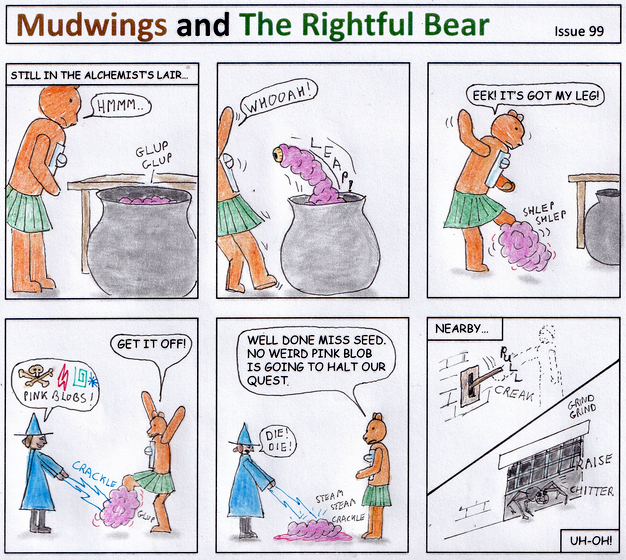 Mudwings and The Rightful Bear
Issue 99
STILL IN THE ALCHEMIST'S LAIR...
HMMM..
GLUP
GLUP
WHOOAH!
LEAP!
EEK! IT'S GOT MY LEG!
SHLEP
SHLEP
PINK BLOBS!
GET IT OFF!
CRACKLE
GLUP
WELL DONE MISS SEED.
NO WEIRD PINK BLOB
IS GOING TO HALT OUR
QUEST.
DIE!
DIE!
STEAM
STEAM
CRACKLE
NEARBY...
PULL
CREAK
GRIND
GRIND
RAISE
CHITTER
UH-OH!